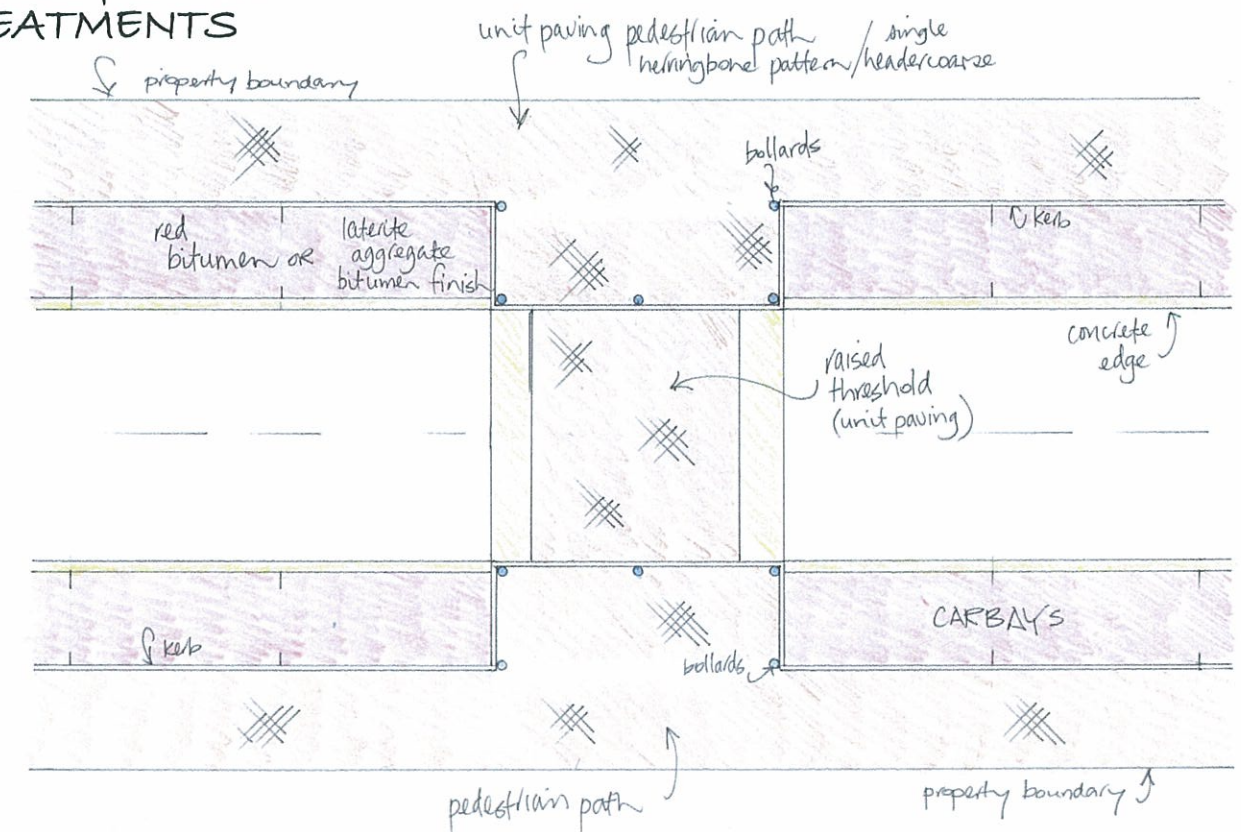 EATMENTS
unit paving pedestrian path / single
herringbone pattern / headercoarse
property boundary
bollards
red
bitumen OR
laterite
aggregate
bitumen finish
kerb
concrete
edge
raised
threshold
(unit paving)
CARBAY'S
kerb
bollards
pedestrian path
property boundary